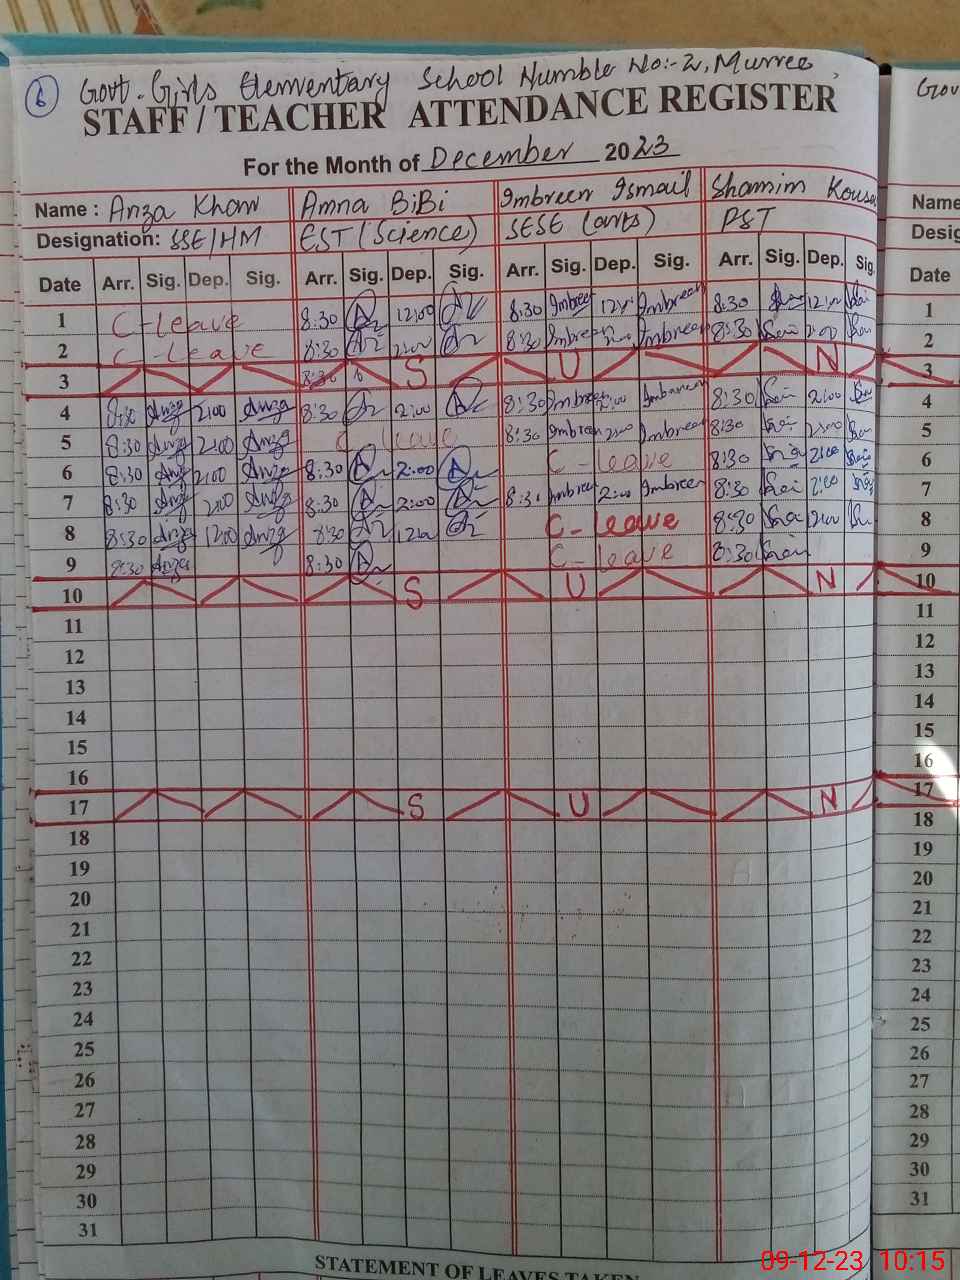 6 Govt. Girls Elementary School Numble No:-2, Murree
STAFF / TEACHER ATTENDANCE REGISTER
For the Month of December 2023
Name : Anza Khan Amna BiBi Imbreen Ismail Shamim Kousa
Designation: SSE/HM EST (Science) SESE (arts) PST
Date Arr. Sig. Dep. Sig. Arr. Sig. Dep. Sig. Arr. Sig. Dep. Sig. Arr. Sig. Dep. Sig.
1 C-leave 8:30 12:00 8:30 Imbreen Imbreen 8:30
2 C-leave 8:30 8:30 Imbreen Imbreen 8:30 2:00
3 8:30 S U N
4 8:30 Anza 2:00 Anza 8:30 2:00 8:30 Imbreen 2:00 Imbreen 8:30 2:00
5 8:30 Anza 2:00 Anza C leave 8:30 Imbreen Imbreen 8:30
6 8:30 Anza 2:00 Anza 8:30 2:00 C-leave 8:30 2:00
7 8:30 Anza 2:00 Anza 8:30 2:00 8:30 Imbreen 2:00 Imbreen 8:30 2:00
8 8:30 Anza 1200 Anza 8:30 C-leave 8:30
9 8:30 Anza 8:30 C-leave 8:30
10 S U N
11
12
13
14
15
16
17 S U N
18
19
20
21
22
23
24
25
26
27
28
29
30
31
STATEMENT OF LEAVES TAKEN
Gov
Name
Desig
Date
1
2
3
4
5
6
7
8
9
10
11
12
13
14
15
16
17
18
19
20
21
22
23
24
25
26
27
28
29
30
31
09-12-23 10:15